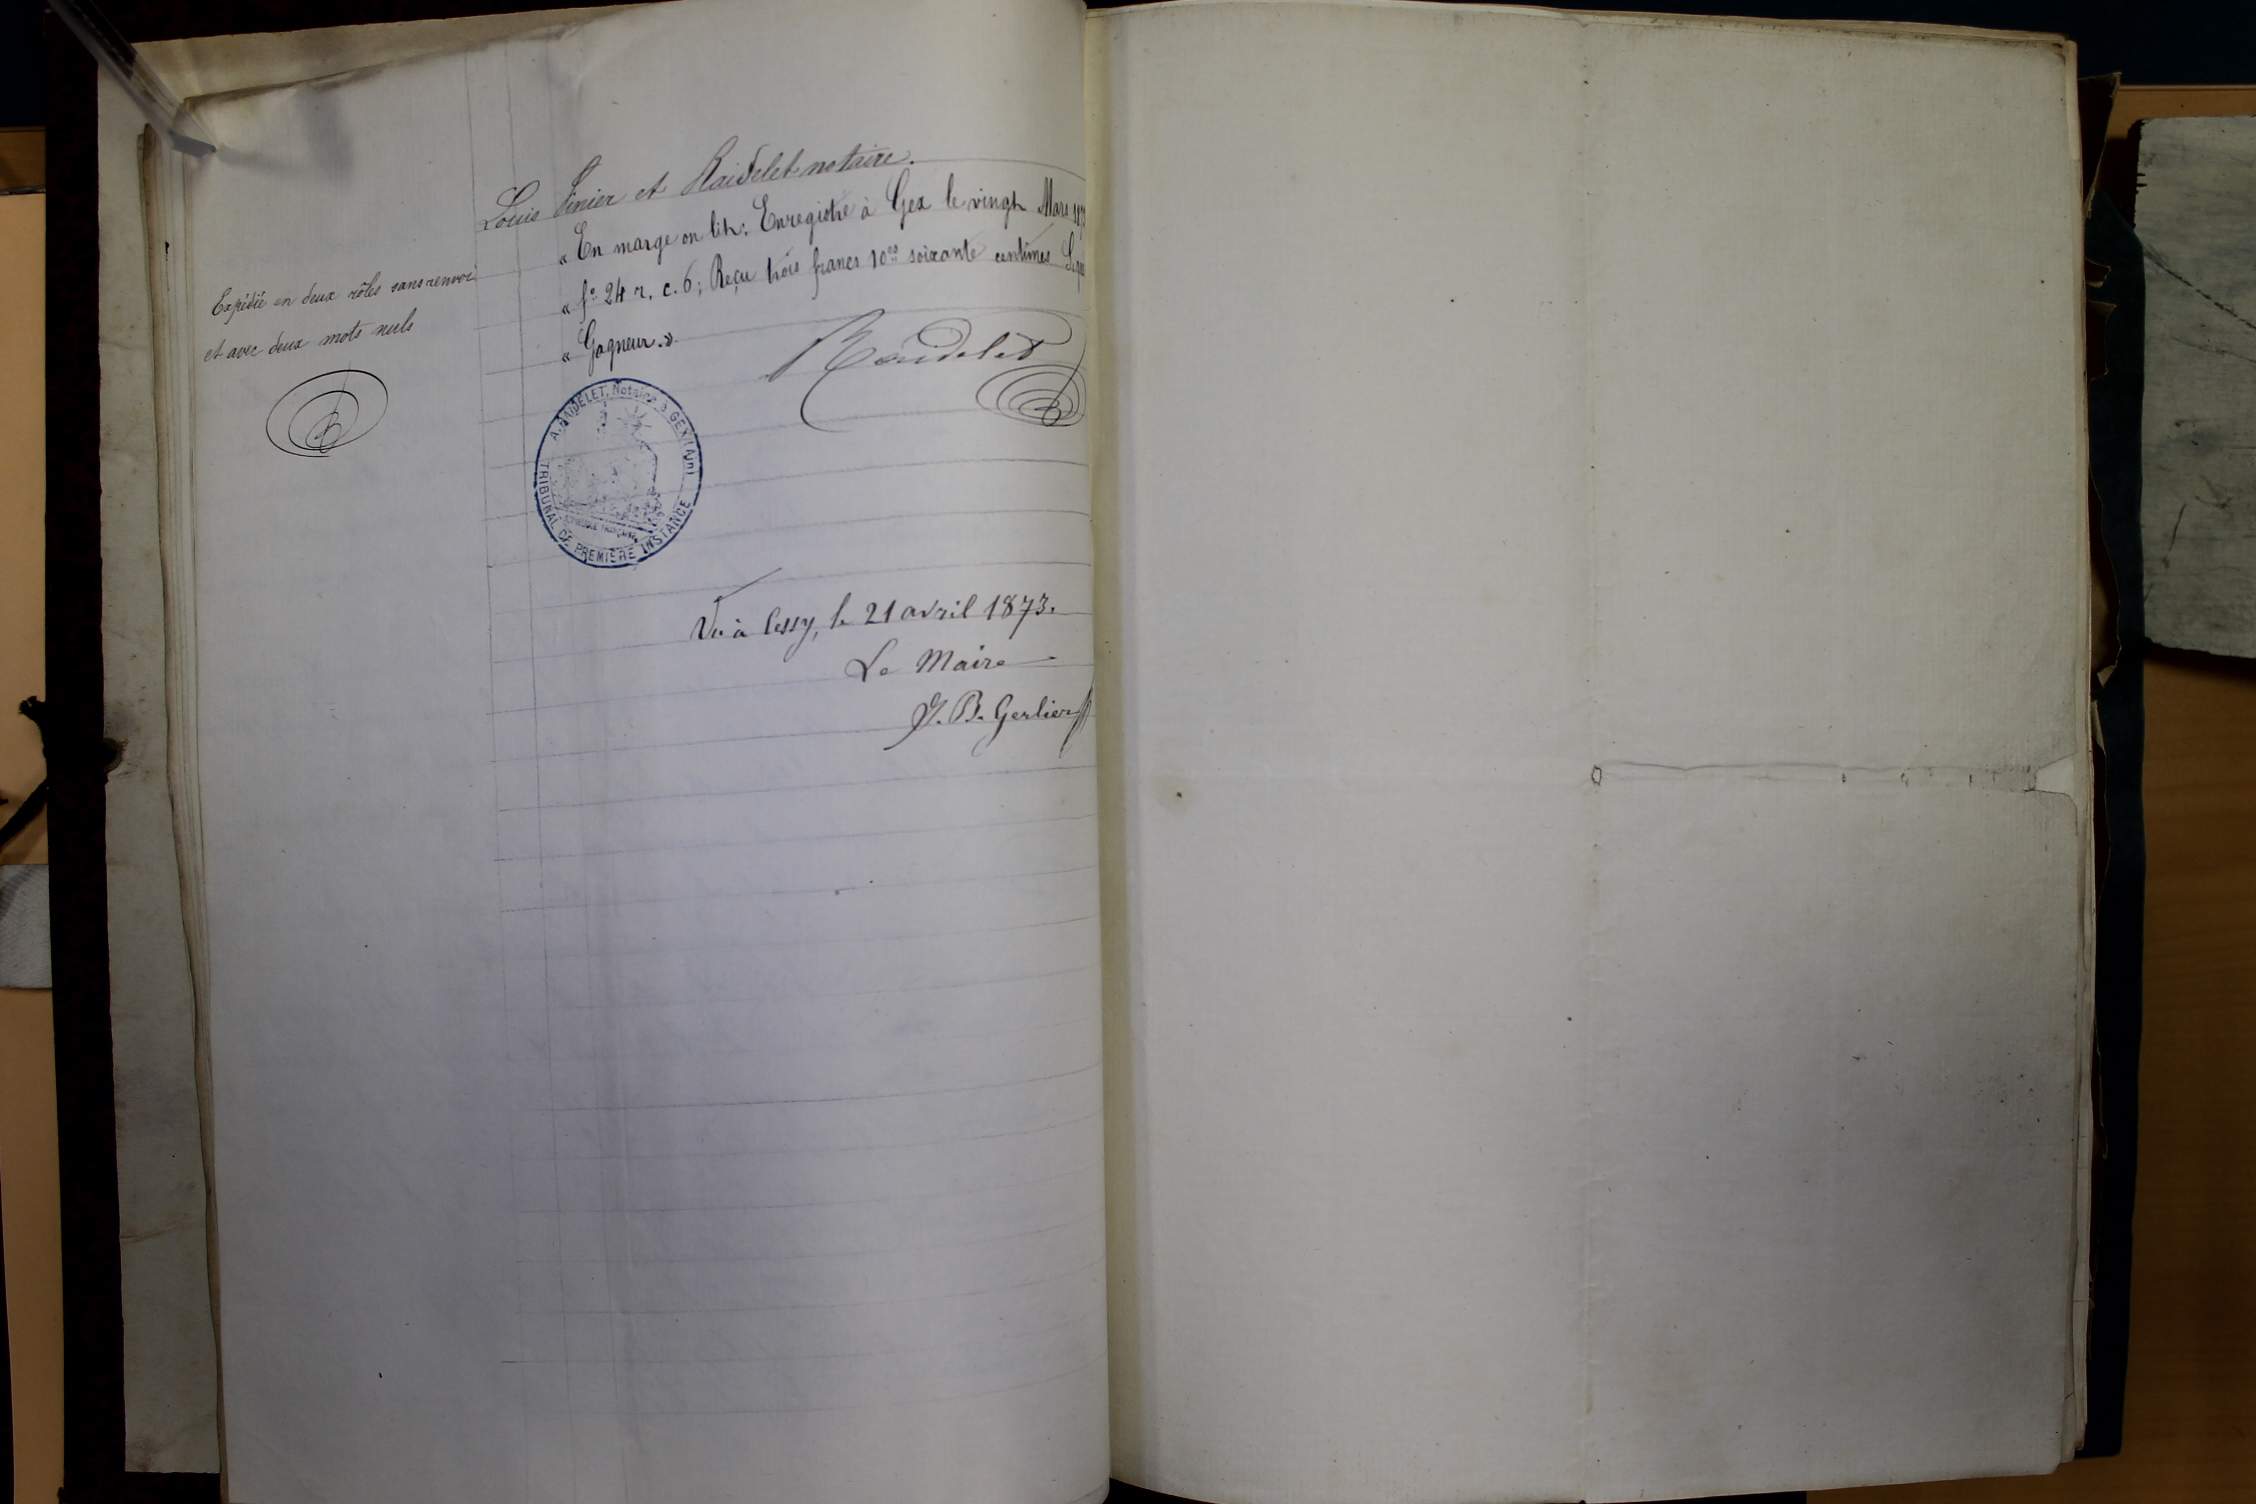 Louis Pinier et Raidelet notaire.
« En marge on lit: Enregistré à Gex le vingt Mars
« f° 24 r. c. 6; Reçu trois francs 10es soixante centimes
« Gagneur. »
Raidelet
Expédié en deux rôles sans renvoi
et avec deux mots nuls
A. RAIDELET, Notaire à GEX (Ain)
TRIBUNAL DE PREMIÈRE INSTANCE
RÉPUBLIQUE FRANÇAISE
Vu à Cessy, le 21 avril 1873.
Le Maire
J. B. Gerlier